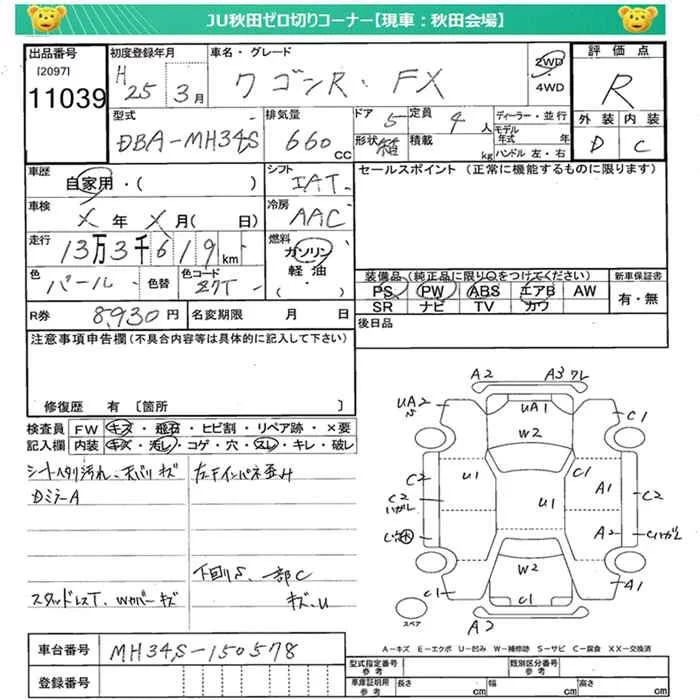 JU秋田ゼロ切りコーナー【現車：秋田会場】
出品番号
[2097]
11039
初度登録年月
H 25 3月
車名・グレード
ワゴンR・FX
2WD
・
4WD
評価点
R
外装 内装
D C
型式
DBA-MH34S
排気量
660 cc
ドア 5
定員 4人
形状 箱
積載 kg
ディーラー・並行
モデル年式 年
ハンドル 左・右
車歴
自家用・( )
シフト
IAT
車検
X年X月( 日)
冷房
AAC
走行
13万3千619km
燃料
ガソリン
軽油
・
( )
色
パール
色替
色コード
Z7T
R券 8,930円
名変期限 月 日
セールスポイント (正常に機能するものに限ります)
装備品 (純正品に限り○をつけてください)
PS PW ABS エアB AW
SR ナビ TV カワ
新車保証書
有・無
後日品
注意事項申告欄(不具合内容等は具体的に記入して下さい)
修復歴 有 〔箇所 〕
検査員記入欄
FW キズ・飛石・ヒビ割・リペア跡・×要
内装 キズ・汚レ・コゲ・穴・スレ・キレ・破レ
シートヘタリ汚れ、天バリキズ
左Fインパネ歪み
DミラーA
下回りS、一部C
キズ、U
スタッドレスT、Wカバーキズ
A2 A3 ワレ
UA2
UA1
C1
W2
C2
U1
C1
A1
C2
C2
U1
A2
W2
C1
C1
A1
A2
スペア
A－キズ E－エクボ U－凹み W－補修跡 S－サビ C－腐食 XX－交換済
車台番号
MH34S-150578
登録番号
型式指定番号 参考
類別区分番号 参考
車庫証明用 参考
長さ cm
幅 cm
高さ cm